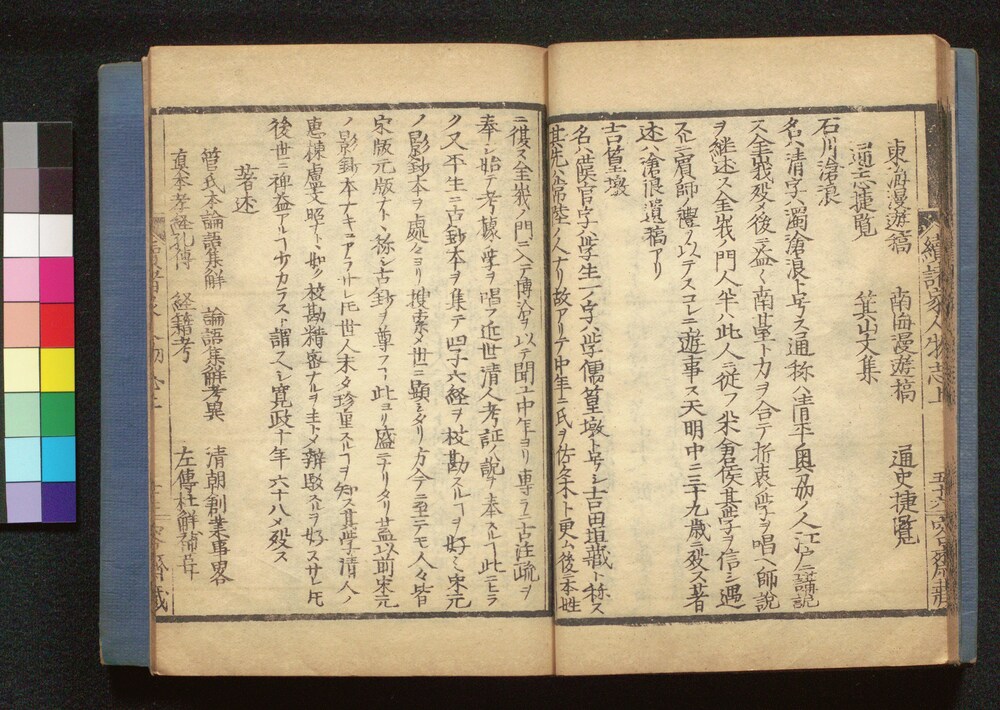 續諸家人物志上
東海漫遊稿　南海漫遊稿　通史捷覧
通志捷覧　箕山文集
石川滄浪
名ハ清字ハ濁滄浪ト号ス通称ハ清平奥刕ノ人江戸ニ講説
ス金峩殁メ後ニ益〻南基ト力ヲ合テ折衷学ヲ唱ヘ師説
ヲ継述ス金峩ノ門人半ハ此人ニ従フ米倉侯其学ヲ信シ遇
スルニ賓師ノ禮ヲ以テスコレニ遊事ス天明中ニ三十九歳ニ殁ス著
述ハ滄浪遺稿アリ
吉篁墩
名ハ漢官字ハ学生一ノ字ハ学儒篁墩ト号シ吉田坦蔵ト称ス
其先ハ常陸ノ人ナリ故アリテ中年ニ氏ヲ佐々木ト更ム後ニ本姓
ニ復ス金峩ノ門ニ入テ博洽ヲ以テ聞エ中年ヨリ専ラ古注疏ヲ
奉シ始テ考據ノ学ヲ唱フ近世清人考証ノ説ヲ奉スルヿ此ニヒラ
ク又平生ニ古鈔本ヲ集テ四子六経ヲ校勘スルヿヲ好ミ宋元
ノ影鈔本ヲ處々ヨリ搜索メ世ニ顕シタリ方今ニ至ニテモ人々皆
宋版元版ナト丶称シ古鈔ヲ尊フヿ此ヨリ盛ニナリタリ蓋以前宋元
ノ影鈔本ナキニアラサレ𪜈世人未タ珍重スルヿヲ知ス其学清人ノ
恵棟盧文昭ナトノ如ク校勘精密ナルヲ主トメ辨駁スルヲ好スサレ𪜈
後世ニ裨益アルヿ少カラスト謂スヘシ寛政十年六十八メ殁ス
著述
管氏本論語集解　論語集解考異　清朝創業事畧
真本孝経孔傳　経籍考　左傳杜解補葺